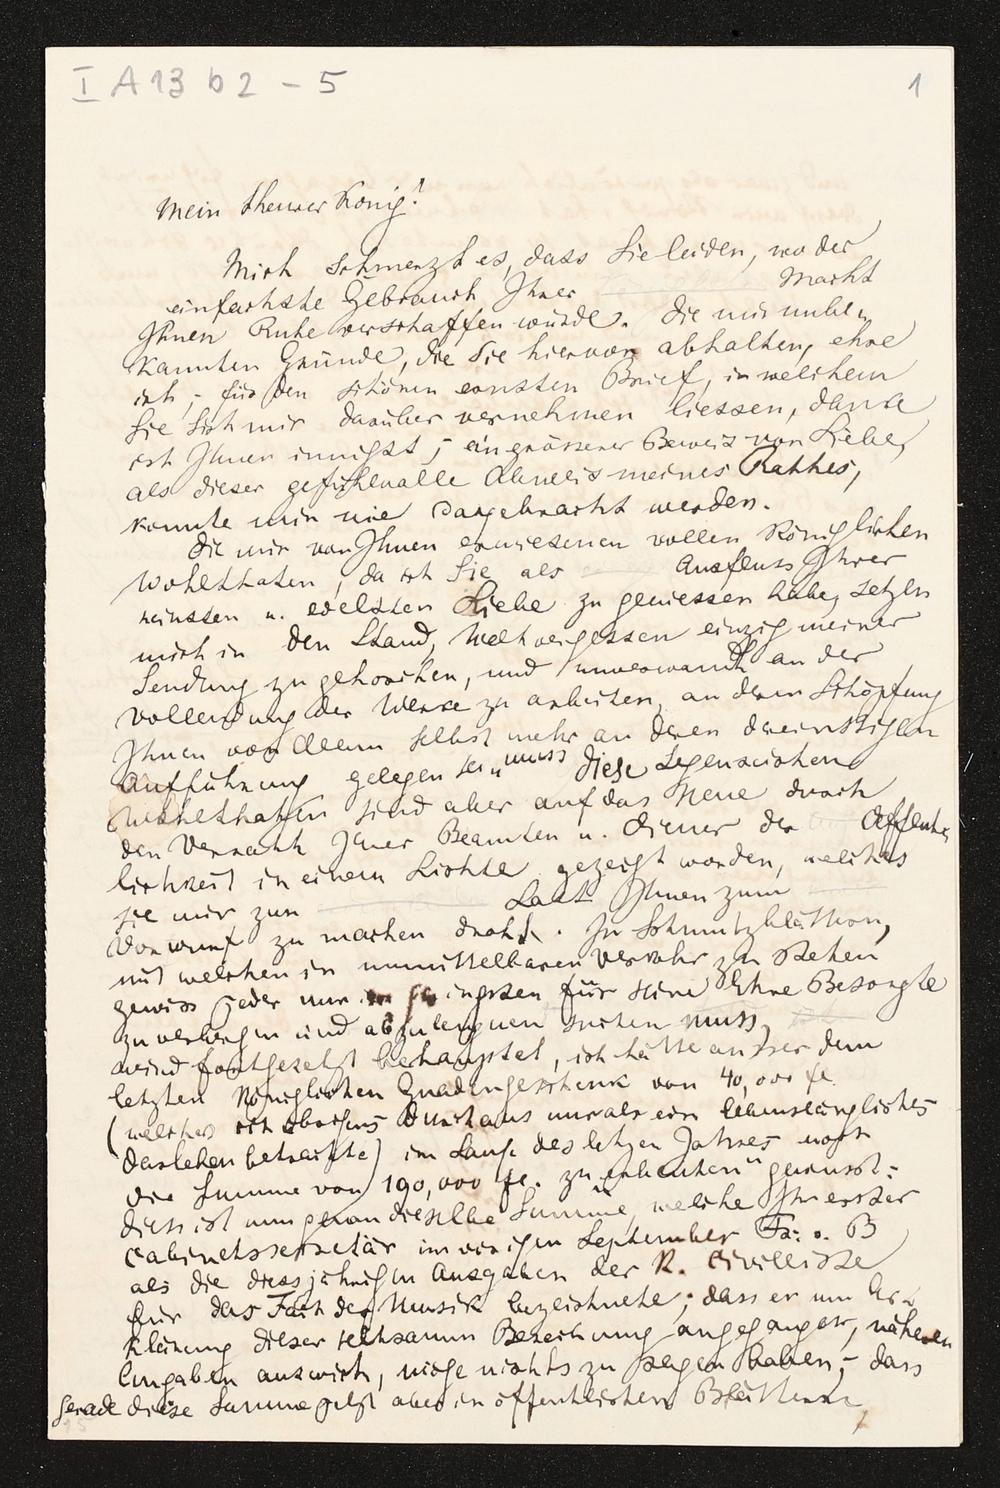 I A 13 b 2 - 5
1
Mein theurer König!
Mich schmerzt es, dass Sie leiden, wo der
einfachste Gebrauch Ihrer Macht
Ihnen Ruhe verschaffen würde. Die mir unbe
kannten Gründe, die Sie hiervon abhalten, ehre
ich; für den schönen ernsten Brief, in welchem
Sie Sich mir darüber vernehmen liessen, danke
ich Ihnen innigst; ein grösserer Beweis von Liebe,
als dieser gefühlvolle Abweis meines Rathes,
konnte mir nie dargebracht werden.
Die mir von Ihnen erwiesenen vollen Königlichen
Wohlthaten, da ich Sie als Ausfluss Ihrer
reinsten u. edelsten Liebe zu geniessen habe, setzen
mich in den Stand, Weltvergessen einzig meiner
Sendung zu gehorchen, und unverwandt an der
Vollendung der Werke zu arbeiten, an deren Schöpfung
Ihnen vor Allem selbst mehr an deren dereinstigen
Aufführung gelegen sein muss Diese segensreichen
Wohlthaten sind aber auf das Neue durch
den Verrath Ihrer Beamten u. Diener der Öffent
lichkeit in einem Lichte gezeigt worden, welches
sie mir zur Last Ihnen zum
Vorwurf zu machen droht. In Schmutzblättern,
mit welchen in unmittelbaren Verkehr zu stehen
gewiss jeder nur im geringsten für seine Ehre Besorgte
zu verbergen und abzuleugnen suchen muss,
wird fortgesetzt behauptet, ich hätte ausser dem
letzten Königlichen Gnadengeschenk von 40,000 fl.
(welches ich übrigens durchaus nur als ein lebenslängliches
Darlehen betrachte) im Laufe des letzten Jahres noch
die Summe von 190,000 fl. zu „erbeuten" gewusst:
diess ist nun genau dieselbe Summe, welche Ihr erster
Cabinetssecretär im vorigen September
als die diessjährigen Ausgaben der K. Civilliste
für das Fach der Musik bezeichnete; dass er um Er
klärung dieser seltsamen Berechnung angegangen, näheren
Angaben auswich, möge nichts zu sagen haben; dass
gerade diese Summe jetzt aber in öffentlichen Blättern